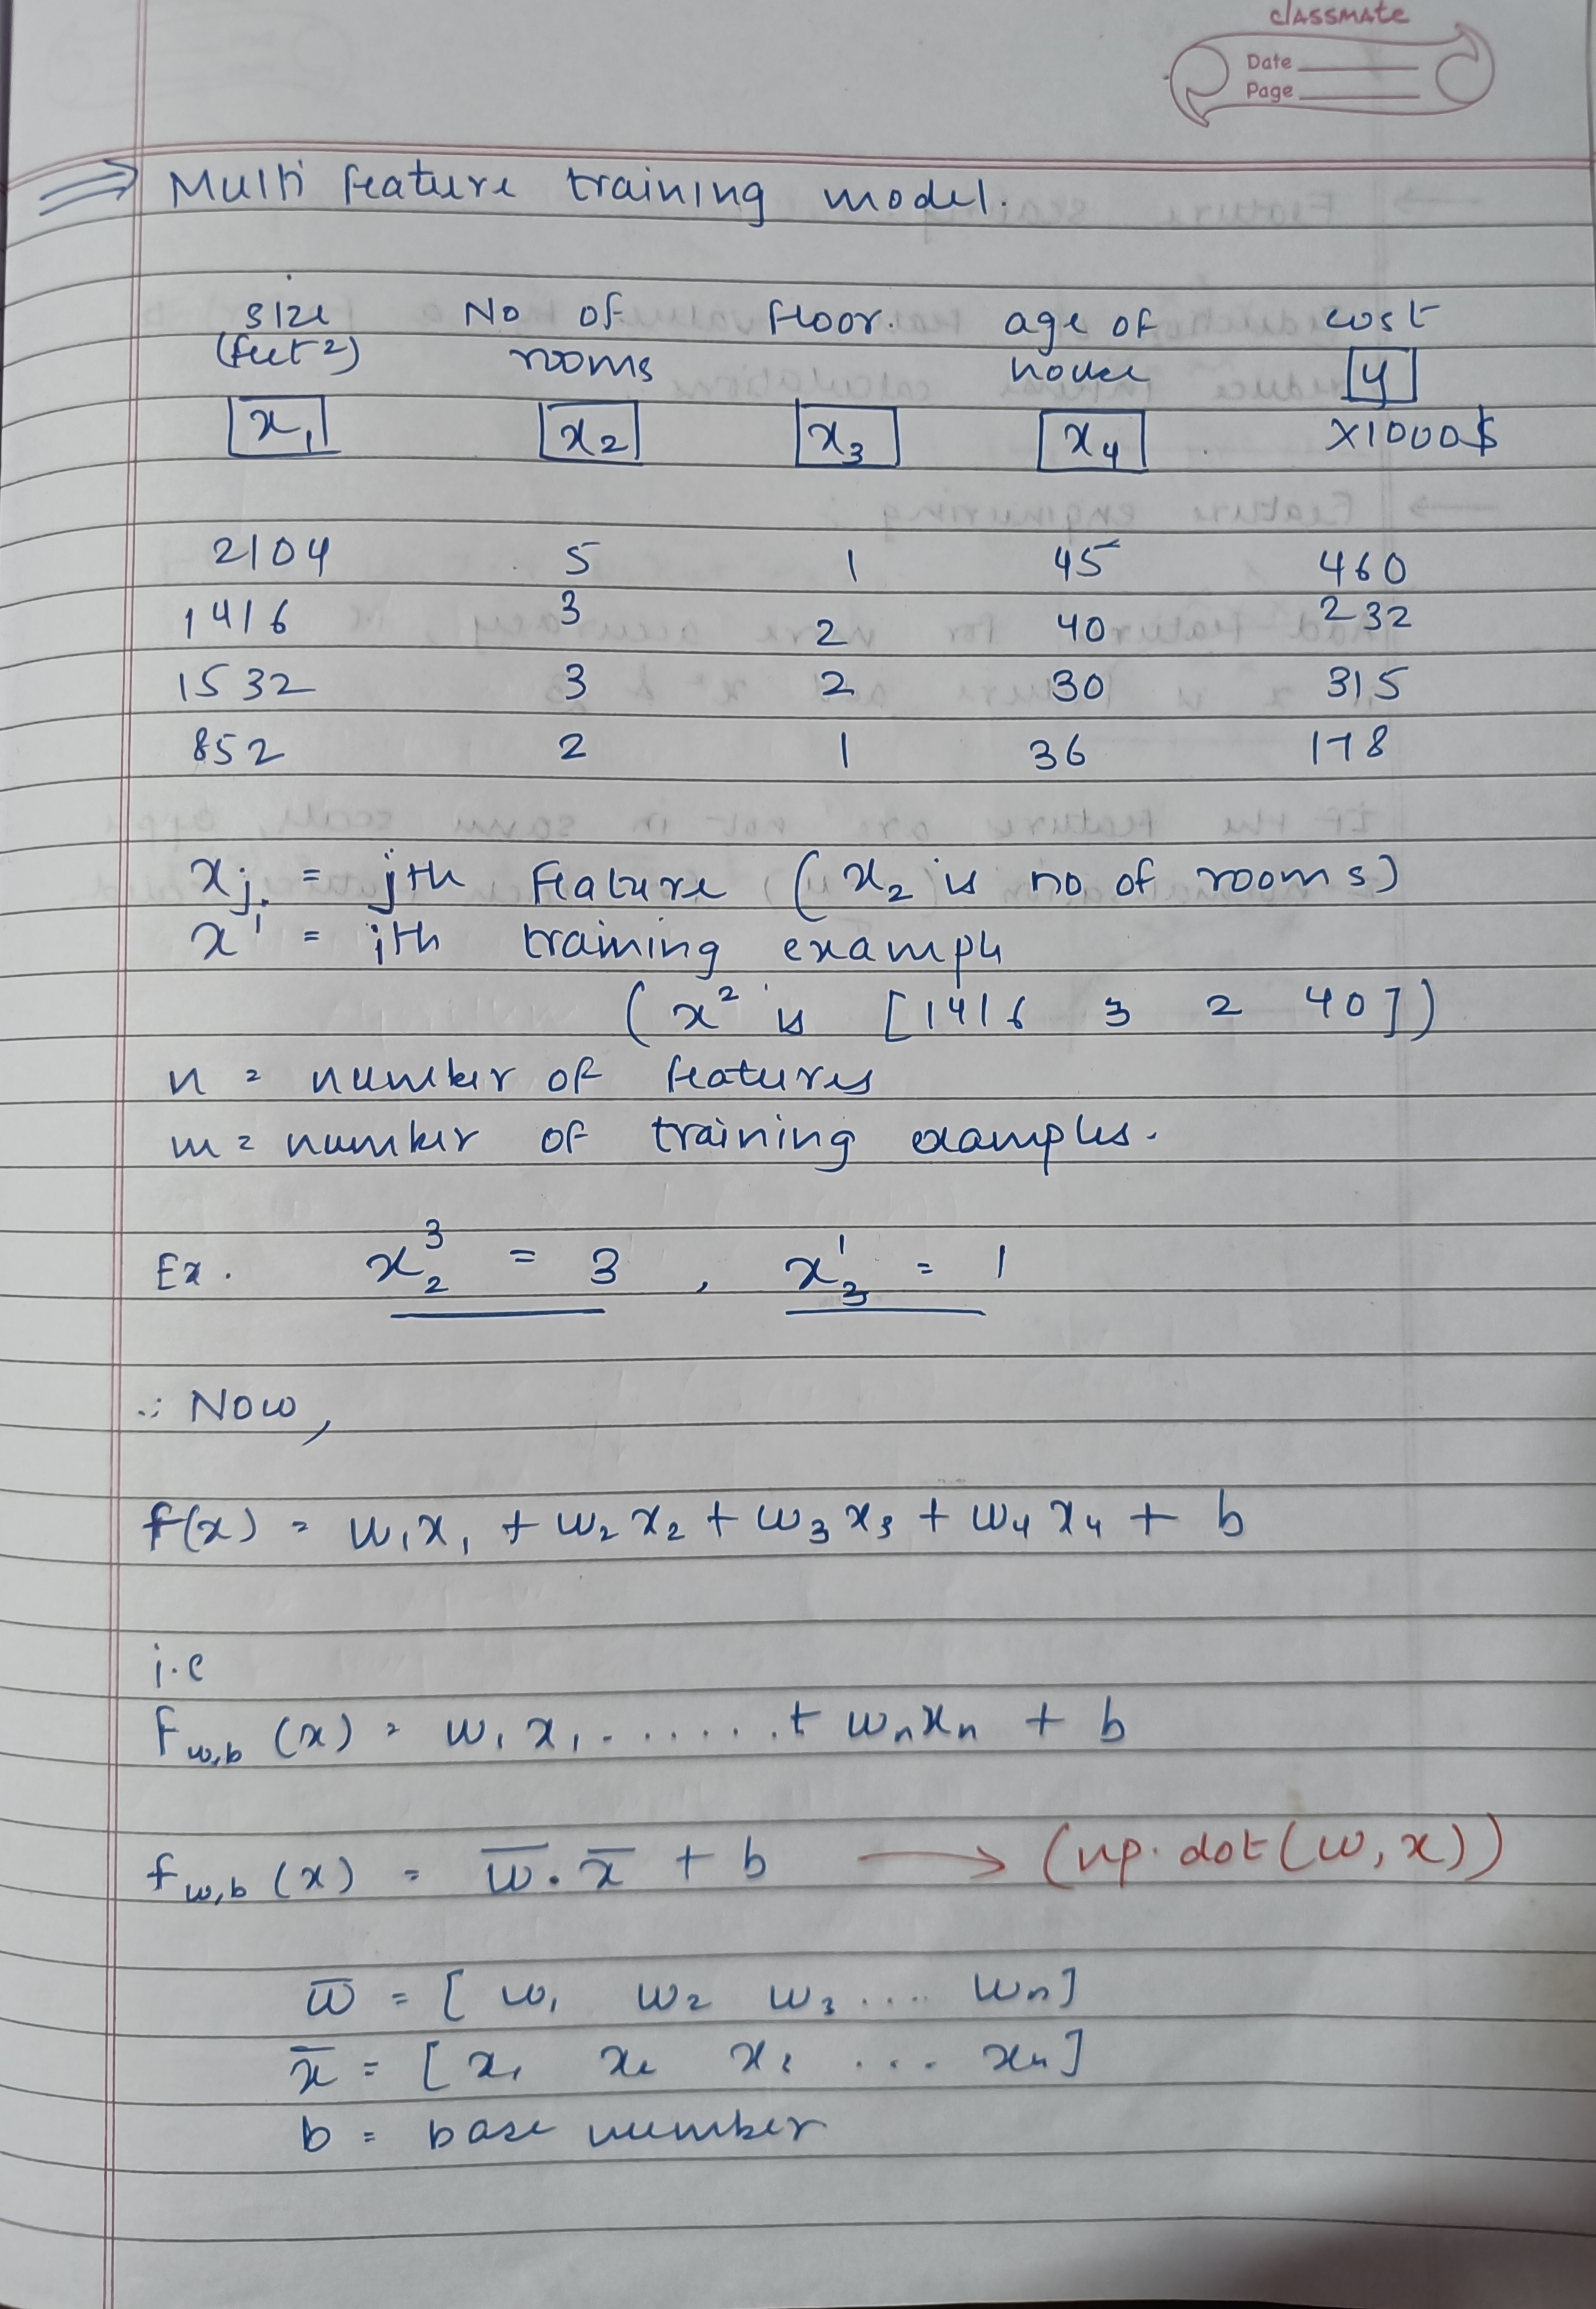 classmate
Date
Page
⇒ Multi feature training model.
size No of floor. age of cost
(feet 2) rooms house y
x₁ x₂ x₃ x₄ ×1000$
2104 5 1 45 460
1416 3 2 40 232
1532 3 2 30 315
852 2 1 36 178
xj = jth feature (x₂ is no of rooms)
xⁱ = ith training example
(x² is [1416 3 2 40])
n = number of features
m = number of training examples.
Ex. x₂³ = 3 , x₃¹ = 1
∴ Now,
f(x) = w₁x₁ + w₂x₂ + w₃x₃ + w₄x₄ + b
i.e
f w,b (x) = w₁x₁.......+ wₙxₙ + b
f w,b (x) = w̅ . x̅ + b → (np.dot(w,x))
w̅ = [ w₁ w₂ w₃ .... wₙ]
x̅ = [ x₁ x₂ x₃ ... xₙ]
b = base number